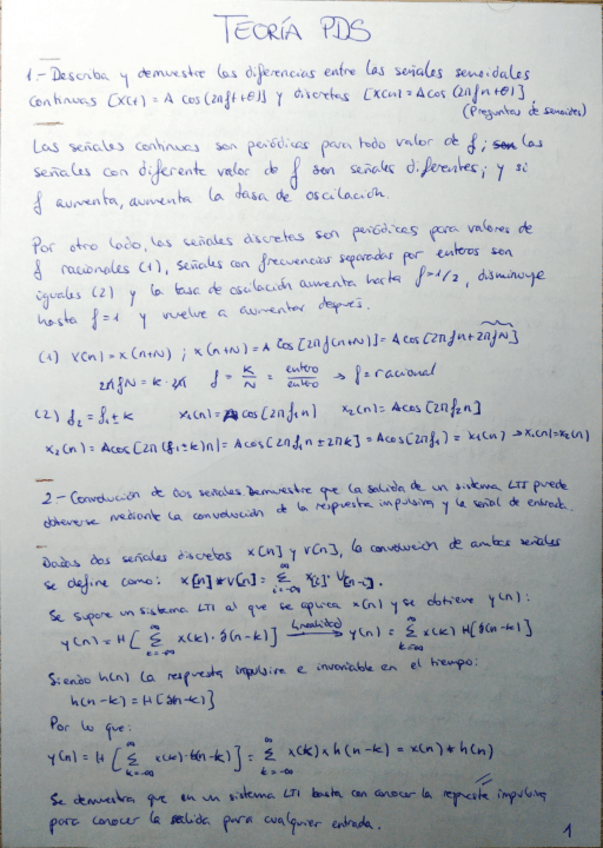 TEORÍA PDS
1.- Describa y demuestre las diferencias entre las señales senoidales
continuas [X(t) = A cos(2πft+θ)] y discretas [X[n] = A cos (2πfn+θ)]
(Preguntas de senoides)
Las señales continuas son periódicas para todo valor de f; las
señales con diferente valor de f son señales diferentes; y si
f aumenta, aumenta la tasa de oscilación.
Por otro lado, las señales discretas son periódicas para valores de
f racionales (1), señales con frecuencias separadas por enteros son
iguales (2) y la tasa de oscilación aumenta hasta f=1/2, disminuye
hasta f=1 y vuelve a aumentar después.
(1) X(n) = x(n+N) ; x(n+N) = A cos[2πf(n+N)] = A cos[2πfn + 2πfN]
2πfN = k·2π f = K/N = entero/entero → f = racional
(2) f₂ = f₁ ± k x₁(n) = A cos[2πf₁n] x₂(n) = A cos[2πf₂n]
x₂(n) = A cos[2π(f₁±k)n] = A cos[2πf₁n ± 2πk] = A cos[2πf₁) = x₁(n) → x₁(n) = x₂(n)
2.- Convolución de dos señales. Demuestre que la salida de un sistema LTI puede
obtenerse mediante la convolución de la respuesta impulsiva y la señal de entrada.
Dadas dos señales discretas x[n] y v[n], la convolución de ambas señales
se define como: x[n] * v[n] = ∞ Σ i=-∞ x[i] · v[n-i].
Se supone un sistema LTI al que se aplica x(n) y se obtiene y(n):
y(n) = H [ ∞ Σ k=-∞ x(k) · δ(n-k) ] linealidad → y(n) = ∞ Σ k=-∞ x(k) H[δ(n-k)]
Siendo h(n) la respuesta impulsiva e invariable en el tiempo:
h(n-k) = H[δ(n-k)]
Por lo que:
y(n) = H [ ∞ Σ k=-∞ x(k) · δ(n-k) ] = ∞ Σ k=-∞ x(k) * h(n-k) = x(n) * h(n)
Se demuestra que en un sistema LTI basta con conocer la respuesta impulsiva
para conocer la salida para cualquier entrada.
1